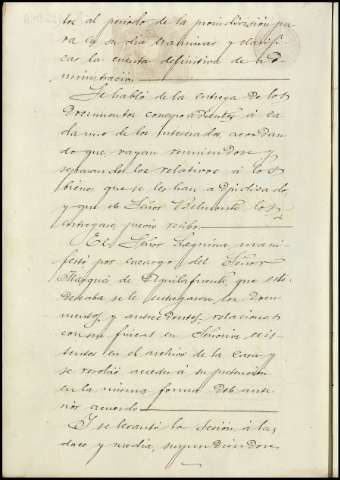 tes al período de la proindivisión pa-
ra en su dia examinar y ratifi-
car la cuenta definitiva de ad-
ministración
Se habló de la entrega de los
Documentos correspondientes á ca-
da uno de los interesados, acordan-
do que vayan reuniendose y
separando los relativos á los
bienes que se les han adjudicado,
y que el Señor Belmonte los
entregara previo recibo
El Señor mani-
festó por encargo del Señor
Marqués de Aguilafuente que este
deseaba se le entregasen los Docu-
mentos y antecedentes relaciona-
con su fincas en Señorios exis-
tentes en el archivo de la Casa y
se resolvió acceder á su pretension
en la misma forma del ante-
rior acuerdo
Y se levantó la Sesión á las
doce y media, suspendiendose